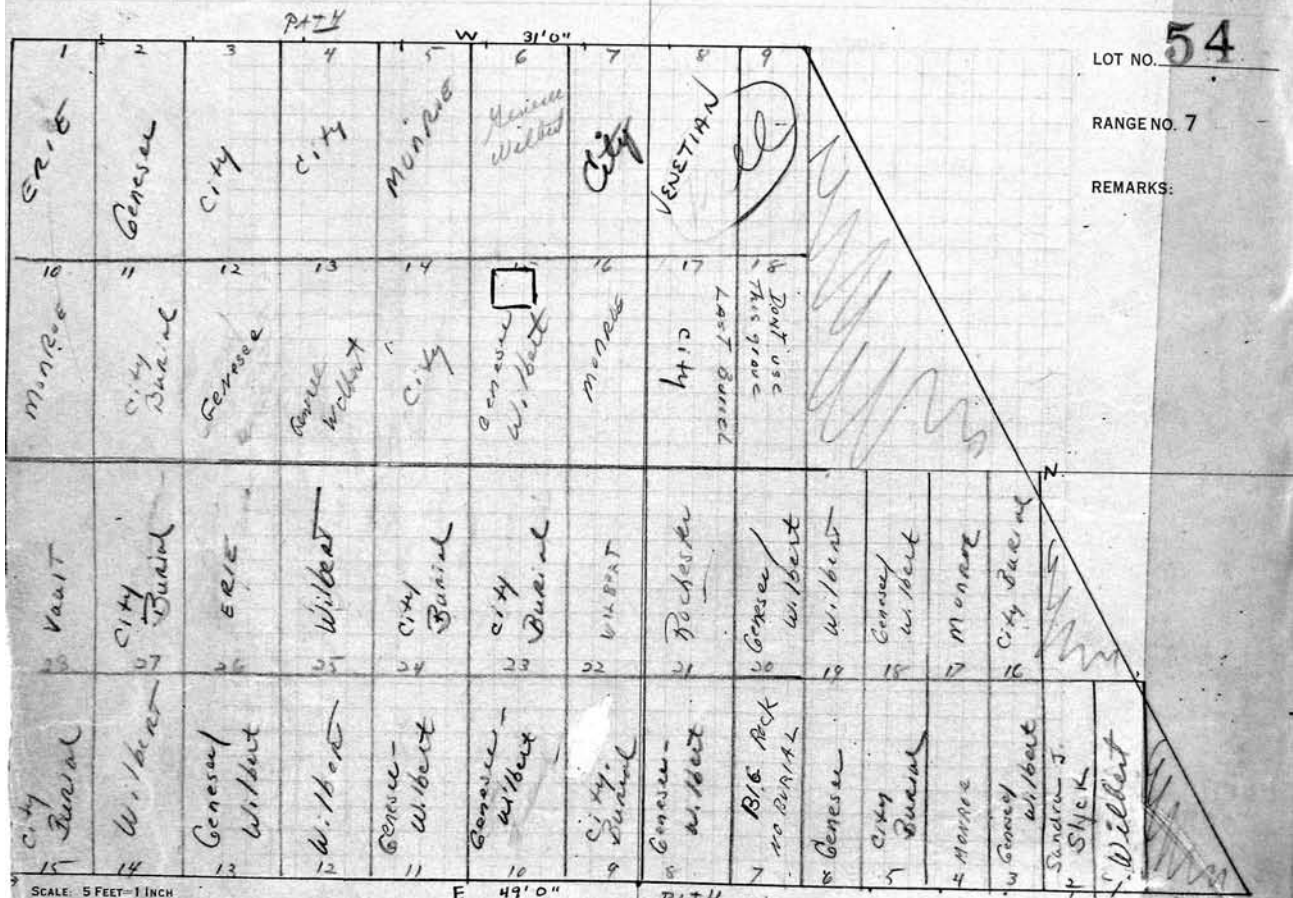 PATH
W 31'0"
LOT NO. 54
RANGE NO. 7
REMARKS:
1 2 3 4 5 6 7 8 9
ERIE
Genesee
City
City
MONROE
Genesee
Wilbert
City
VENETIAN
10 11 12 13 14 15 16 17 18
MONROE
City
Burial
Genesee
Genesee
Wilbert
City
Genesee
Wilbert
MONROE
City
LAST BURIEL
Dont use
This grave
N
Vault
City
Burial
ERIE
Wilbert
City
Burial
City
Burial
Wilbert
Rochester
Genesee/
Wilbert
Wilbert
Genesee/
Wilbert
Monroe
City Burial
28 27 26 25 24 23 22 21 20 19 18 17 16
City
Burial
Wilbert
Genesee/
Wilbert
Wilbert
Genesee-
Wilbert
Genesee-
Wilbert
City-
Burial
Genesee-
Wilbert
BIG Rock
NO BURIAL
Genesee
City
Burial
MONROE
Genesee/
Wilbert
Sandra J.
Slyck
Wilbert
15 14 13 12 11 10 9 8 7 6 5 4 3 2 1
SCALE: 5 FEET=1 INCH
E 49'0"
PATH